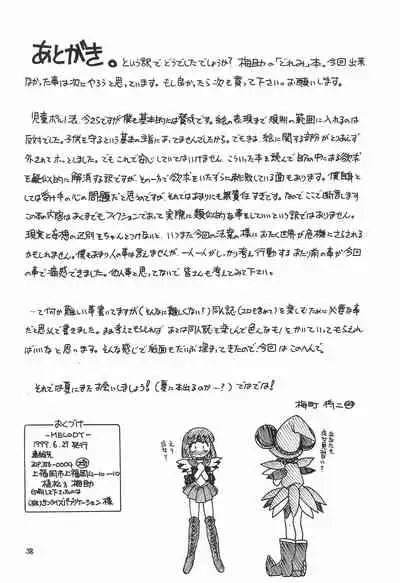 あとがき。という訳でどうでしたでしょうか？梅助の「どれみ」本。今回出来
なかった事は次にやろうと思っています。もし良かったら次も買って下さい。お願いします。
児童ポルノ法、今さらですが僕も基本的には賛成です。絵の表現まで規制の範囲に入れるのは
反対でした。子供を守るという基本の主旨にあってませんでしたから。でもまあ、絵に関する部分がとりあえず
外されてホッとしました。でもこれで安心していてはいけません。こういった本を読んで自分の中にある欲求
を疑似的に解消する訳ですが、その一方で欲求をいたずらに挑発している面もあります。僕自身と
しては受け手の心の問題だと思うのですが、それではあまりにも無責任すぎです。なのでここで断言します
この本の内容はあくまでもフィクションであって実際に類似的な事をしていいという訳ではありません。
現実と妄想の区別をちゃんとつけないと、いつまた今回の法案の様におたく世界が危機にさらされる
かもしれません。僕もあまり人の事は言えませんが、一人一人がしっかり考え行動するあたり前の事が今回
の事で痛感できました。他人事と思ってないで皆さんも考えてみて下さい。
って何か難しい事書いてますが(そんなに難しくない！)同人誌(エロも含めて)を楽しむために必要な事
だと思んで書きました。まぁ考えてもらえれば、あとは同人誌を楽しんで色んなモノをかいていってもらえれ
ばいいなと思います。そんな感じで紙面もだいぶ埋まってきたので、今回はこのへんで。
それでは夏にまたお会いしましょう！(夏に本出るのか～?)ではでは！
梅町
おくづけ
-MELODY-
1999.6.27 発行
連絡先
上福岡市上福岡4-10-10
植松方 梅助
印刷して下さったのは
(株)サンライズパブリケーション 様
38